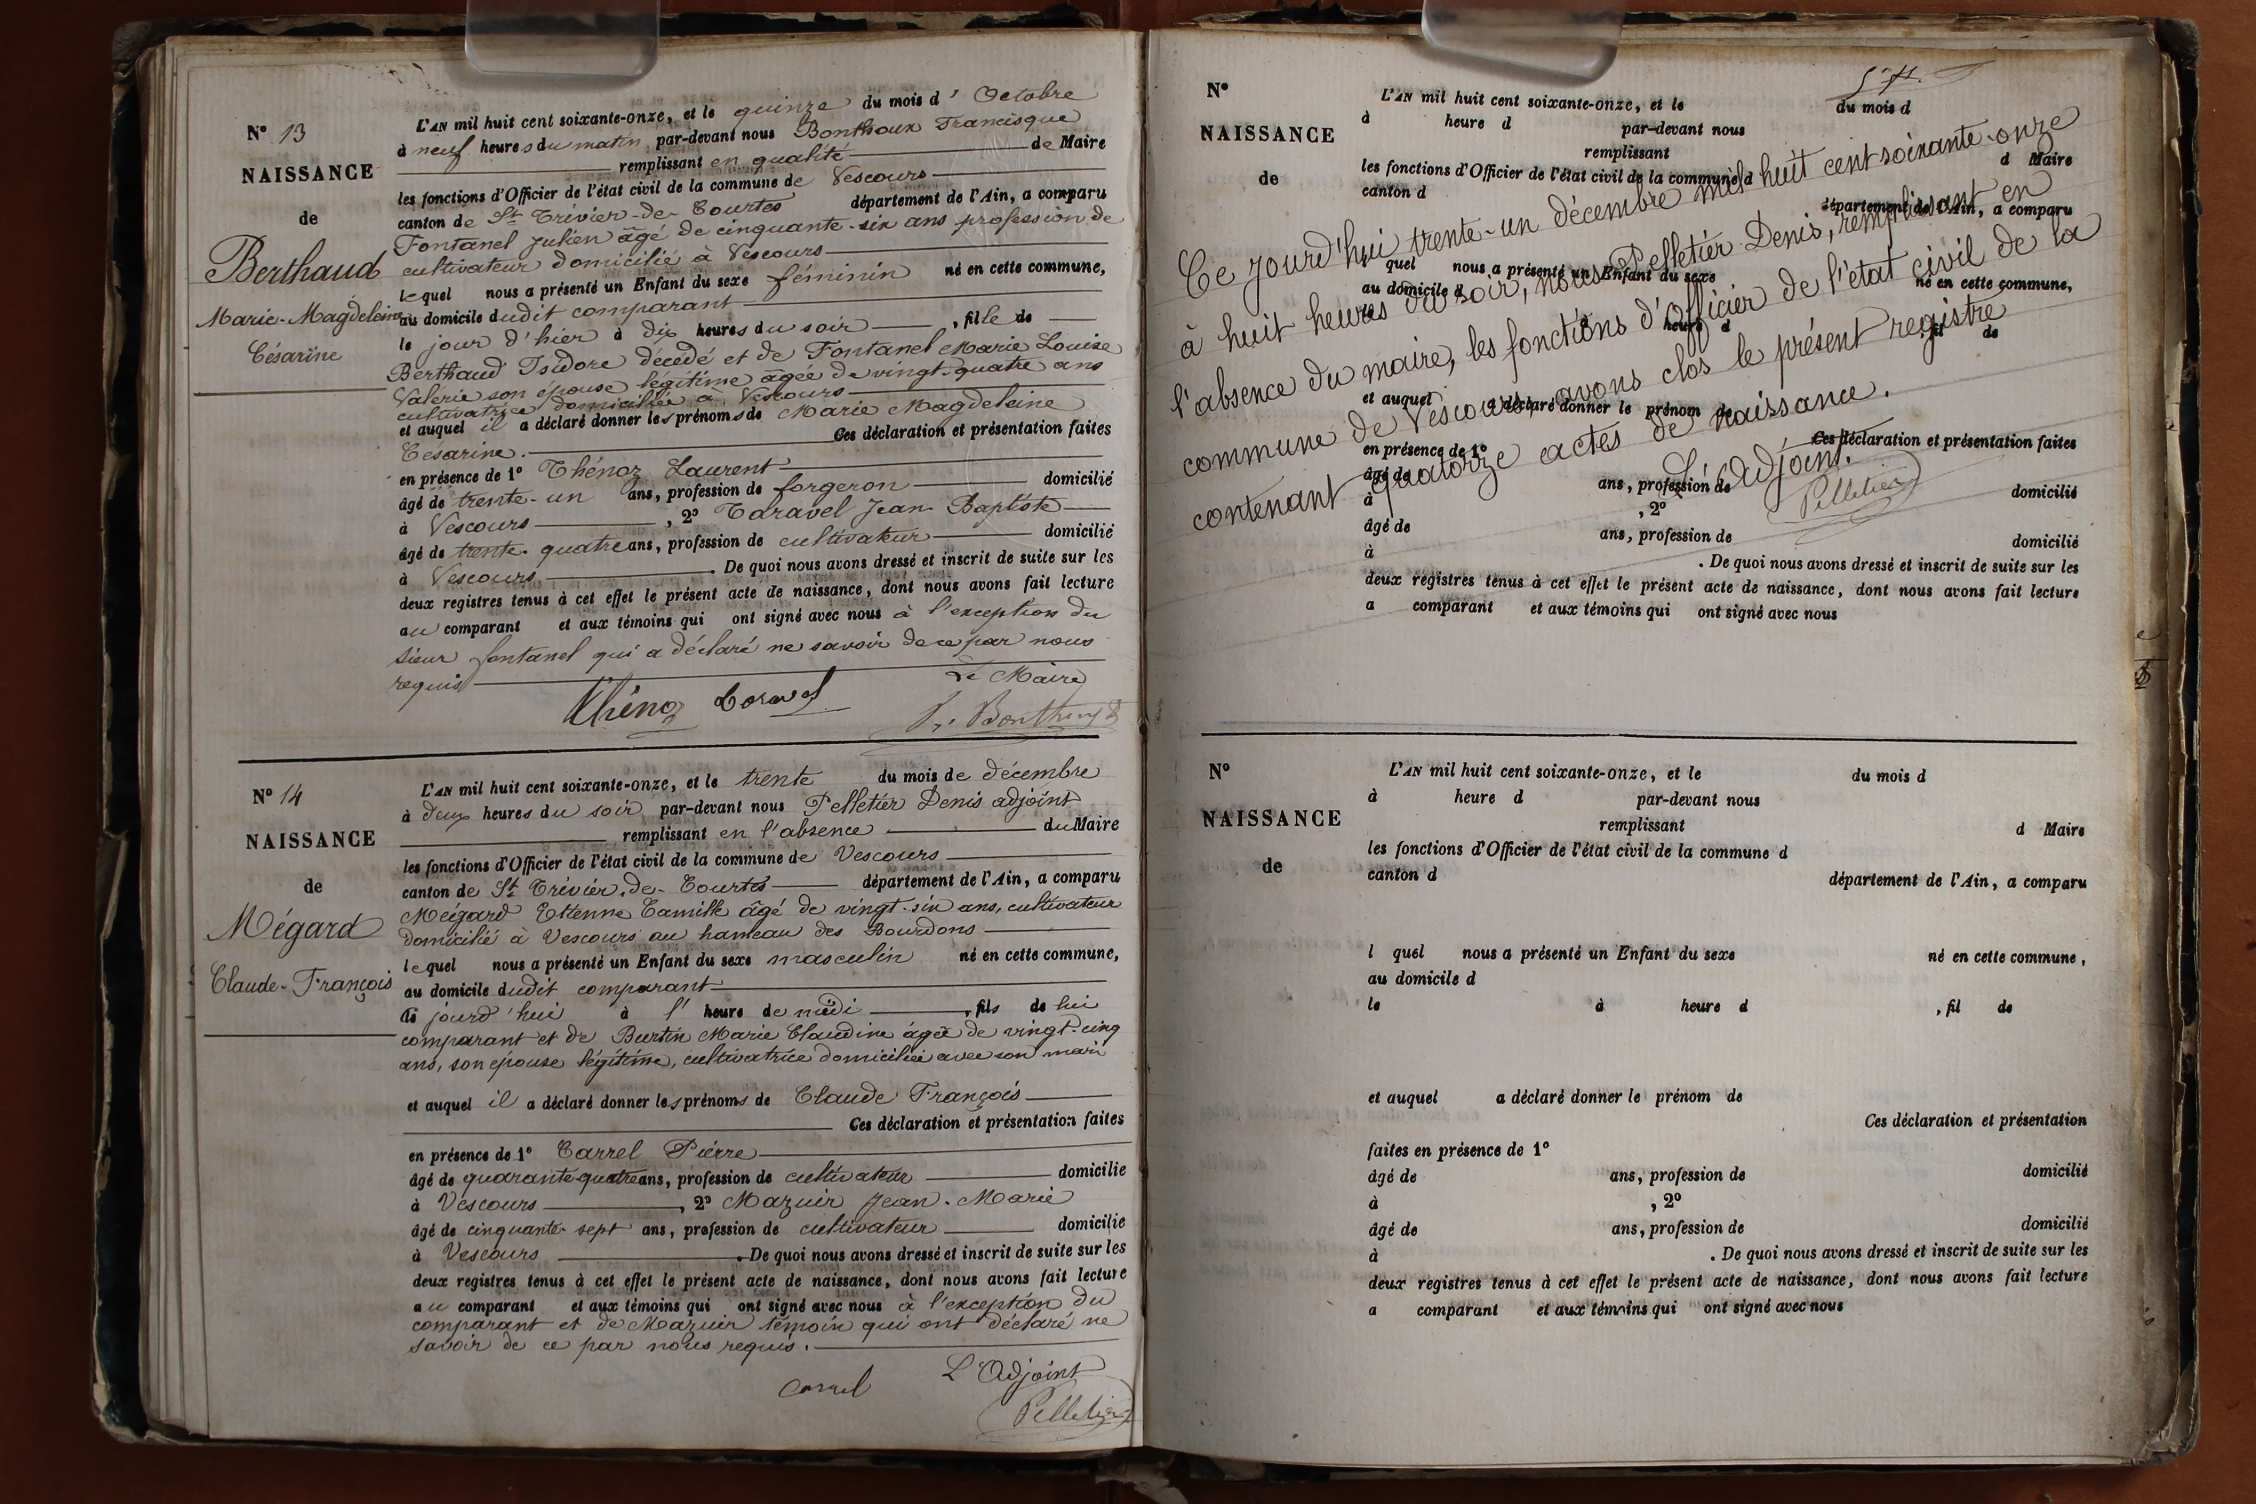 N° 13
NAISSANCE
de
Berthaud
Marie-Magdeleine
Césarine
L'AN mil huit cent soixante-onze, et le quinze du mois d'Octobre
à neuf heures du matin par-devant nous Bonthoux Francisque
remplissant en qualité de Maire
les fonctions d'Officier de l'état civil de la commune de Vescours
canton de St Trivier-de-Courtes département de l'Ain, a comparu
Fontanel Julien âgé de cinquante-six ans profession de
cultivateur domicilié à Vescours
lequel nous a présenté un Enfant du sexe féminin né en cette commune,
au domicile dudit comparant
le jour d'hier à dix heures du soir, fille de
Berthaud Isidore décédé et de Fontanel Marie Louise
Valérie son épouse légitime âgée de vingt-quatre ans
cultivatrice domiciliée à Vescours
et auquel il a déclaré donner les prénoms de Marie Magdeleine
Césarine. Ces déclaration et présentation faites
en présence de 1° Thénoz Laurent
âgé de trente-un ans, profession de forgeron domicilié
à Vescours, 2° Taravel Jean-Baptiste
âgé de trente-quatre ans, profession de cultivateur domicilié
à Vescours. De quoi nous avons dressé et inscrit de suite sur les
deux registres tenus à cet effet le présent acte de naissance, dont nous avons fait lecture
au comparant et aux témoins qui ont signé avec nous à l'exception du
sieur fontanel qui a déclaré ne savoir de ce par nous
requis
Le Maire
Thénoz Taravel
N° 14
NAISSANCE
de
Mégard
Claude-François
L'AN mil huit cent soixante-onze, et le trente du mois de décembre
à deux heures du soir par-devant nous Pelletier Denis adjoint
remplissant en l'absence du Maire
les fonctions d'Officier de l'état civil de la commune de Vescours
canton de St Trivier-de-Courtes département de l'Ain, a comparu
Mégard Etienne Camille âgé de vingt-six ans, cultivateur
domicilié à Vescours au hameau des Bourdons
lequel nous a présenté un Enfant du sexe masculin né en cette commune,
au domicile dudit comparant
jourd'hui à l'heure de midi, fils de lui
comparant et de Burtin Marie Claudine âgée de vingt-cinq
ans, son épouse légitime, cultivatrice domiciliée avec son mari
et auquel il a déclaré donner les prénoms de Claude François
Ces déclaration et présentation faites
en présence de 1° Carrel Pierre
âgé de quarante-quatre ans, profession de cultivateur domicilié
à Vescours, 2° Mazuir Jean-Marie
âgé de cinquante-sept ans, profession de cultivateur domicilié
à Vescours. De quoi nous avons dressé et inscrit de suite sur les
deux registres tenus à cet effet le présent acte de naissance, dont nous avons fait lecture
au comparant et aux témoins qui ont signé avec nous à l'exception du
comparant et de Mazuir témoin qui ont déclaré ne
savoir de ce par nous requis.
L'Adjoint
Carrel
Pelletier
N°
NAISSANCE
de
L'AN mil huit cent soixante-onze, et le du mois d
à heure d par-devant nous
remplissant d Maire
les fonctions d'Officier de l'état civil de la commune d
canton d département de l'Ain, a comparu
l quel nous a présenté un Enfant du sexe né en cette commune,
au domicile d
le à heure d, fil de
et auquel a déclaré donner le prénom de
Ces déclaration et présentation faites
en présence de 1°
âgé de ans, profession de domicilié
à , 2°
âgé de ans, profession de domicilié
à . De quoi nous avons dressé et inscrit de suite sur les
deux registres tenus à cet effet le présent acte de naissance, dont nous avons fait lecture
a comparant et aux témoins qui ont signé avec nous
Ce jourd'hui trente-un décembre mil huit cent soixante-onze
à huit heures du soir, nous Pelletier Denis, remplissant en
l'absence du maire, les fonctions d'Officier de l'état civil de la
commune de Vescours, avons clos le présent registre
contenant quatorze actes de naissance.
L'Adjoint.
Pelletier
N°
NAISSANCE
de
L'AN mil huit cent soixante-onze, et le du mois d
à heure d par-devant nous
remplissant d Maire
les fonctions d'Officier de l'état civil de la commune d
canton d département de l'Ain, a comparu
l quel nous a présenté un Enfant du sexe né en cette commune,
au domicile d
le à heure d , fil de
et auquel a déclaré donner le prénom de
Ces déclaration et présentation
faites en présence de 1°
âgé de ans, profession de domicilié
à , 2°
âgé de ans, profession de domicilié
à . De quoi nous avons dressé et inscrit de suite sur les
deux registres tenus à cet effet le présent acte de naissance, dont nous avons fait lecture
a comparant et aux témoins qui ont signé avec nous